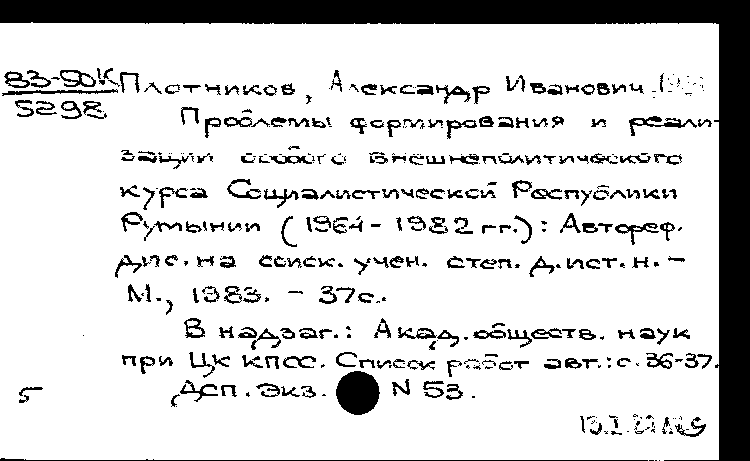 83-50К Плотников, Александр Иванович
5298
Проблемы формирования и реали-
зации особого внешнеполитического
курса Социалистической Республики
Румынии (1964-1982 гг.): Автореф.
дис. на соиск. учен. степ. д. ист. н. -
М., 1983. - 37с.
В надзаг.: Акад. обществ. наук
при ЦК КПСС. Список работ авт.: с. 36-37.
5 Дсп. Экз. N 53.